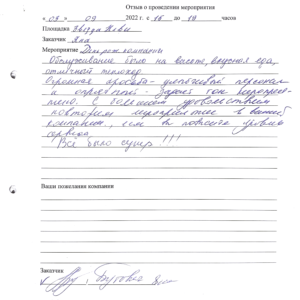 Отзыв о проведении мероприятия
« 08 » 09 2022 г. с 16 до 18 часов
Площадка Звезда Невы
Заказчик Яна
Мероприятие День рож. компании
Обслуживание было на высоте, вкусная еда,
отличный теплоход.
Огромная просьба - улыбчивый персонал
и опрятный - задает тон мероприя-
тию. С большим удовольствием
повторим мероприятие в вашей
компании, если вы повысите уровень
сервиса
Все было супер !!!
Ваши пожелания компании
Заказчик